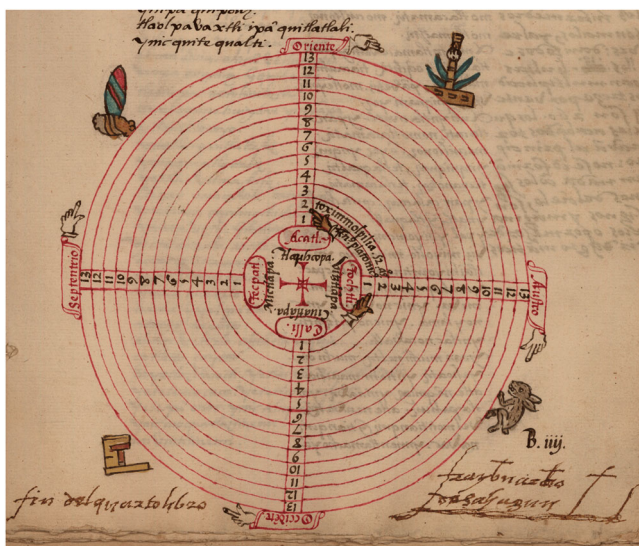 tlaol pavaxtli ipã quitlatlali.
ymc quite qualti.
Oriente
13
12
11
10
9
8
7
6
5
4
3
2
1
Acatl.
toximmolpilia
Tlauhcopa.
Septentrio
13 12 11 10 9 8 7 6 5 4 3 2 1
Tecpatl
Mictlãpa.
Tochtli
1 2 3 4 5 6 7 8 9 10 11 12 13
Austro
Calli.
1
2
3
4
5
6
7
8
9
10
11
12
13
Occidẽte
B. iiij.
fin del quarto libro
fray bernardino
de sahagun